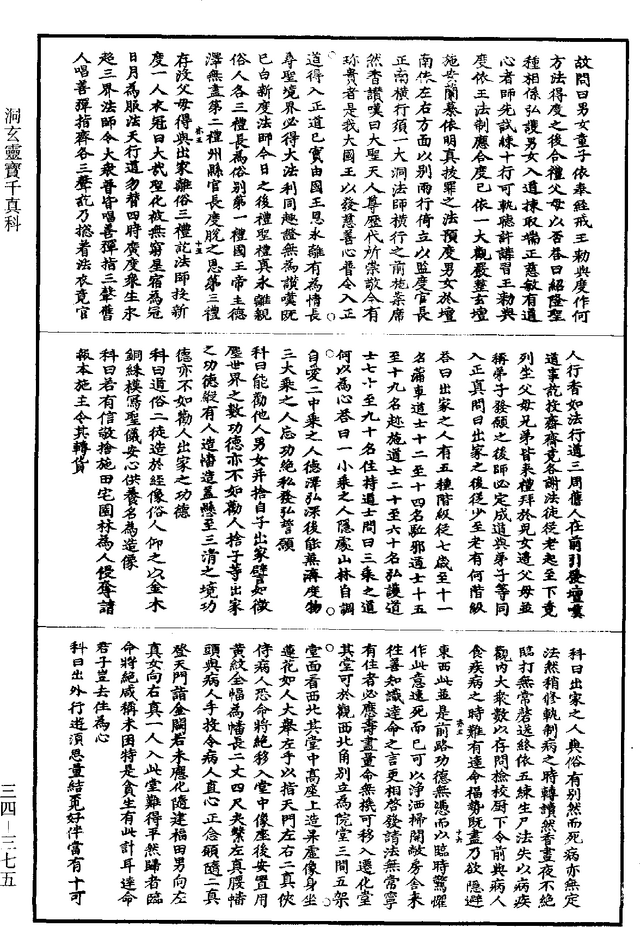 故問曰男女童子依奉經戒王勑與度作何
方法得度之後合禮父母以否答曰紹隆聖
種相係弘護男女入道揀取端正慈敏有道
心者師先試練十行可軌聽許講習王勑與
度依王法制應合度已依一大觀嚴整玄壇
施安蘭綦依明真按罪之法預度男女於壇
南依左右方面以別兩行倚立以監度官長
正南橫行須一大洞法師橫行之前施案席
然香讚嘆曰大聖天人尊歷代所崇敬今有
珎貴者是我大國王以發慈善心普令入正
道得入正道已實由國王恩永離有為情長
尋聖境界必得大法利同趣證無為讚嘆既
已白新度法師今日之後禮聖禮真永離親
俗人各三禮長為俗別第一禮國王帝主德
澤無盡第二禮州縣官長度脫之恩第三禮
存歿父母得與出家離俗三禮訖法師授新
度一人衣冠曰大哉聖化故無窮星宿為冠
日月為服法天行道勿替四時廣度衆生永
超三界法師令大衆普皆唱善彈指三聲舊
人唱善彈指齋各三聲訖乃捻着法衣竟官
人行香如法行道三周舊人在前引登壇嘆
道事訖投齋齋竟各謝法徒從老起至下竟
列坐父母兄弟皆來禮拜於見女遣父母並
稱弟子發願之後師必定成道與弟子等同
入正真問曰出家之後從少至老有何階級
答曰出家之人有五種階級從七歲至十一
名蒲車道士十二至十四名駈邪道士十五
至十九名趂施道士二十至六十名弘護道
士七十至九十名住持道士問曰三乘之道
何以為心答曰一小乘之人隱處山林自調
自愛二中乘之人德澤弘深後能兼濟度物
三大乘之人忘功絕私發弘誓願
科曰能勸他人男女并捨自子出家譬如微
塵世界之數功德亦不如勸人捨子等出家
之功德縱有人造幡造蓋懸至三清之境功
德亦不如勸人出家之功德
科曰道俗二徒造於經像俗人仰之以金木
銅綵模寫聖儀安心供養名為造像
科曰若有信敬捨施田宅園林為人侵奪請
報本施主令其轉貨
科曰出家之人與俗有別然而死病亦無定
法然稍修軌制病之時轉讀然香晝夜不絕
臨打無常磬送終依五練生尸法失以病疾
觀内大衆數以存問檢校厨下令前與病人
食疾病之時難有達命福勢既盡乃欲隱避
東西此並是前路功德無憑而以臨時驚懼
作此意速死而已可以淨洒掃閑敞房舍來
往善知識達命之言更相啓發請法無常寧
有住者必應壽盡量命無機可移入遷化堂
其堂可於觀西北角別立為院堂三間五架
堂面看西北其堂中高座上造昇虛像身坐
蓮花如人大舉左手以指天門左右二真俠
侍病人恐命將絕移入堂中像座後安置用
黃紋全幅為幡長二丈四尺夾繫左真腰幡
頭與病人手投令病人直心正念願隨二真
登天門詣金闕若未應化隨建福田男向左
真女向右真一人入此堂難得平然歸者臨
命將絕咸稱未困特是貪生有此計耳達命
君子豈去住為心
科曰出外行遊須思量結覓好伴當有十可
洞玄靈寶千真科
三四—三七五